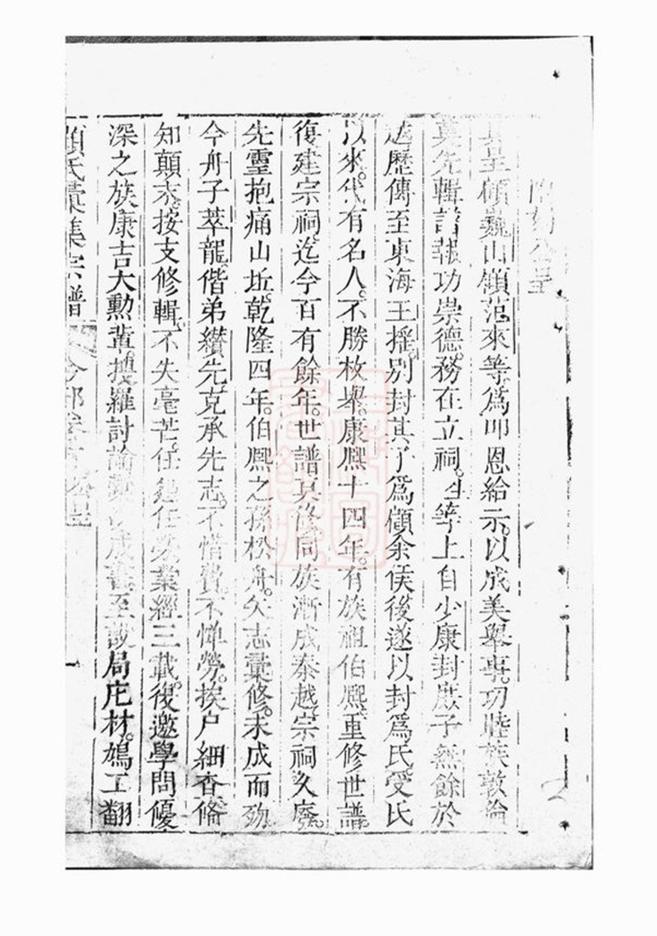 公呈
具呈顧巍山領范來等為叩恩給示以成美舉事。功睦族敦倫
莫先輯譜報功崇德。務在立祠。生等上自少康封庶子無餘於
越歷傳至東海王搖。別封其子為顧余侯後遂以封為氏受氏
以來。代有名人。不勝枚舉。康熙十四年。有族祖伯熙重修世譜。
復建宗祠迄今百有餘年。世譜莫修同族漸成秦越宗祠久廢。
先靈抱痛山坵。乾隆四年。伯熙之孫松舟。矢志彙修。未成而殀
今舟子萃龍。偕弟纘先克承先志。不惜費。不憚勞。挨户細查俻
知顛末。按支修輯。不失毫芒。任業經三載。復邀學問優
深之族康吉大勳輩。搜羅討論成書。至設局庀材。鳩工翻
顧氏彙集宗譜
公呈